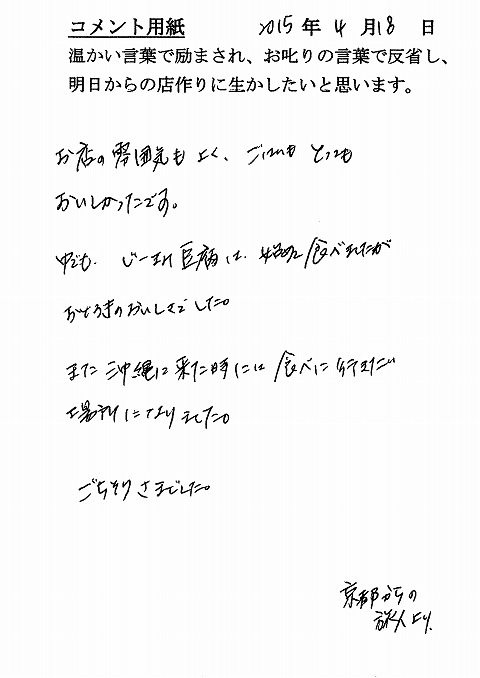 コメント用紙 2015年4月18日
温かい言葉で励まされ、お叱りの言葉で反省し、
明日からの店作りに生かしたいと思います。
お店の雰囲気もよく、ごはんも とっても
おいしかったです。
中でも、じーまみ豆腐は、始めて食べましたが
おどろきのおいしさでした。
また沖縄に来た時には食べに行きたい
場所になりました。
ごちそうさまでした。
京都からの
旅人より。